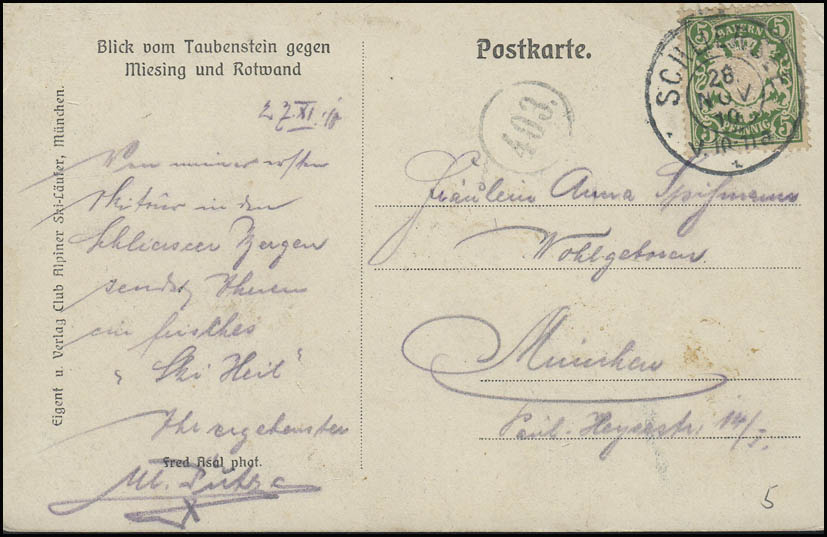 Blick vom Taubenstein gegen
Miesing und Rotwand
27. XI.
Von meiner ersten
Skitour in den
Schlierseer Bergen
sendet Ihnen
ein frisches
"Ski Heil"
Ihr ergebenster
Fred Asal phot.
Eigent u. Verlag Club Alpiner Ski-Läufer, München.
Postkarte.
403.
5 BAYERN 5
5 PFENNIG 5
28
NOV
Fräulein Anna
Wohlgeboren.
München
Paul-Heysestr. 14/I.
5